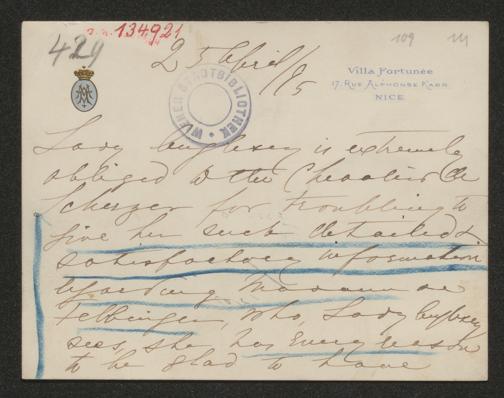 429
134921
109
25 April/95
WIENER STADTBIBLIOTHEK
Villa Fortunée
17, Rue Alphonse Karr
NICE
Lady is extremely
obliged to the Chevalier de
Scherzer for troubling to
give her such detailed &
satisfactory information
regarding Madame de
who, Lady
sees, she has every reason
to be glad to have